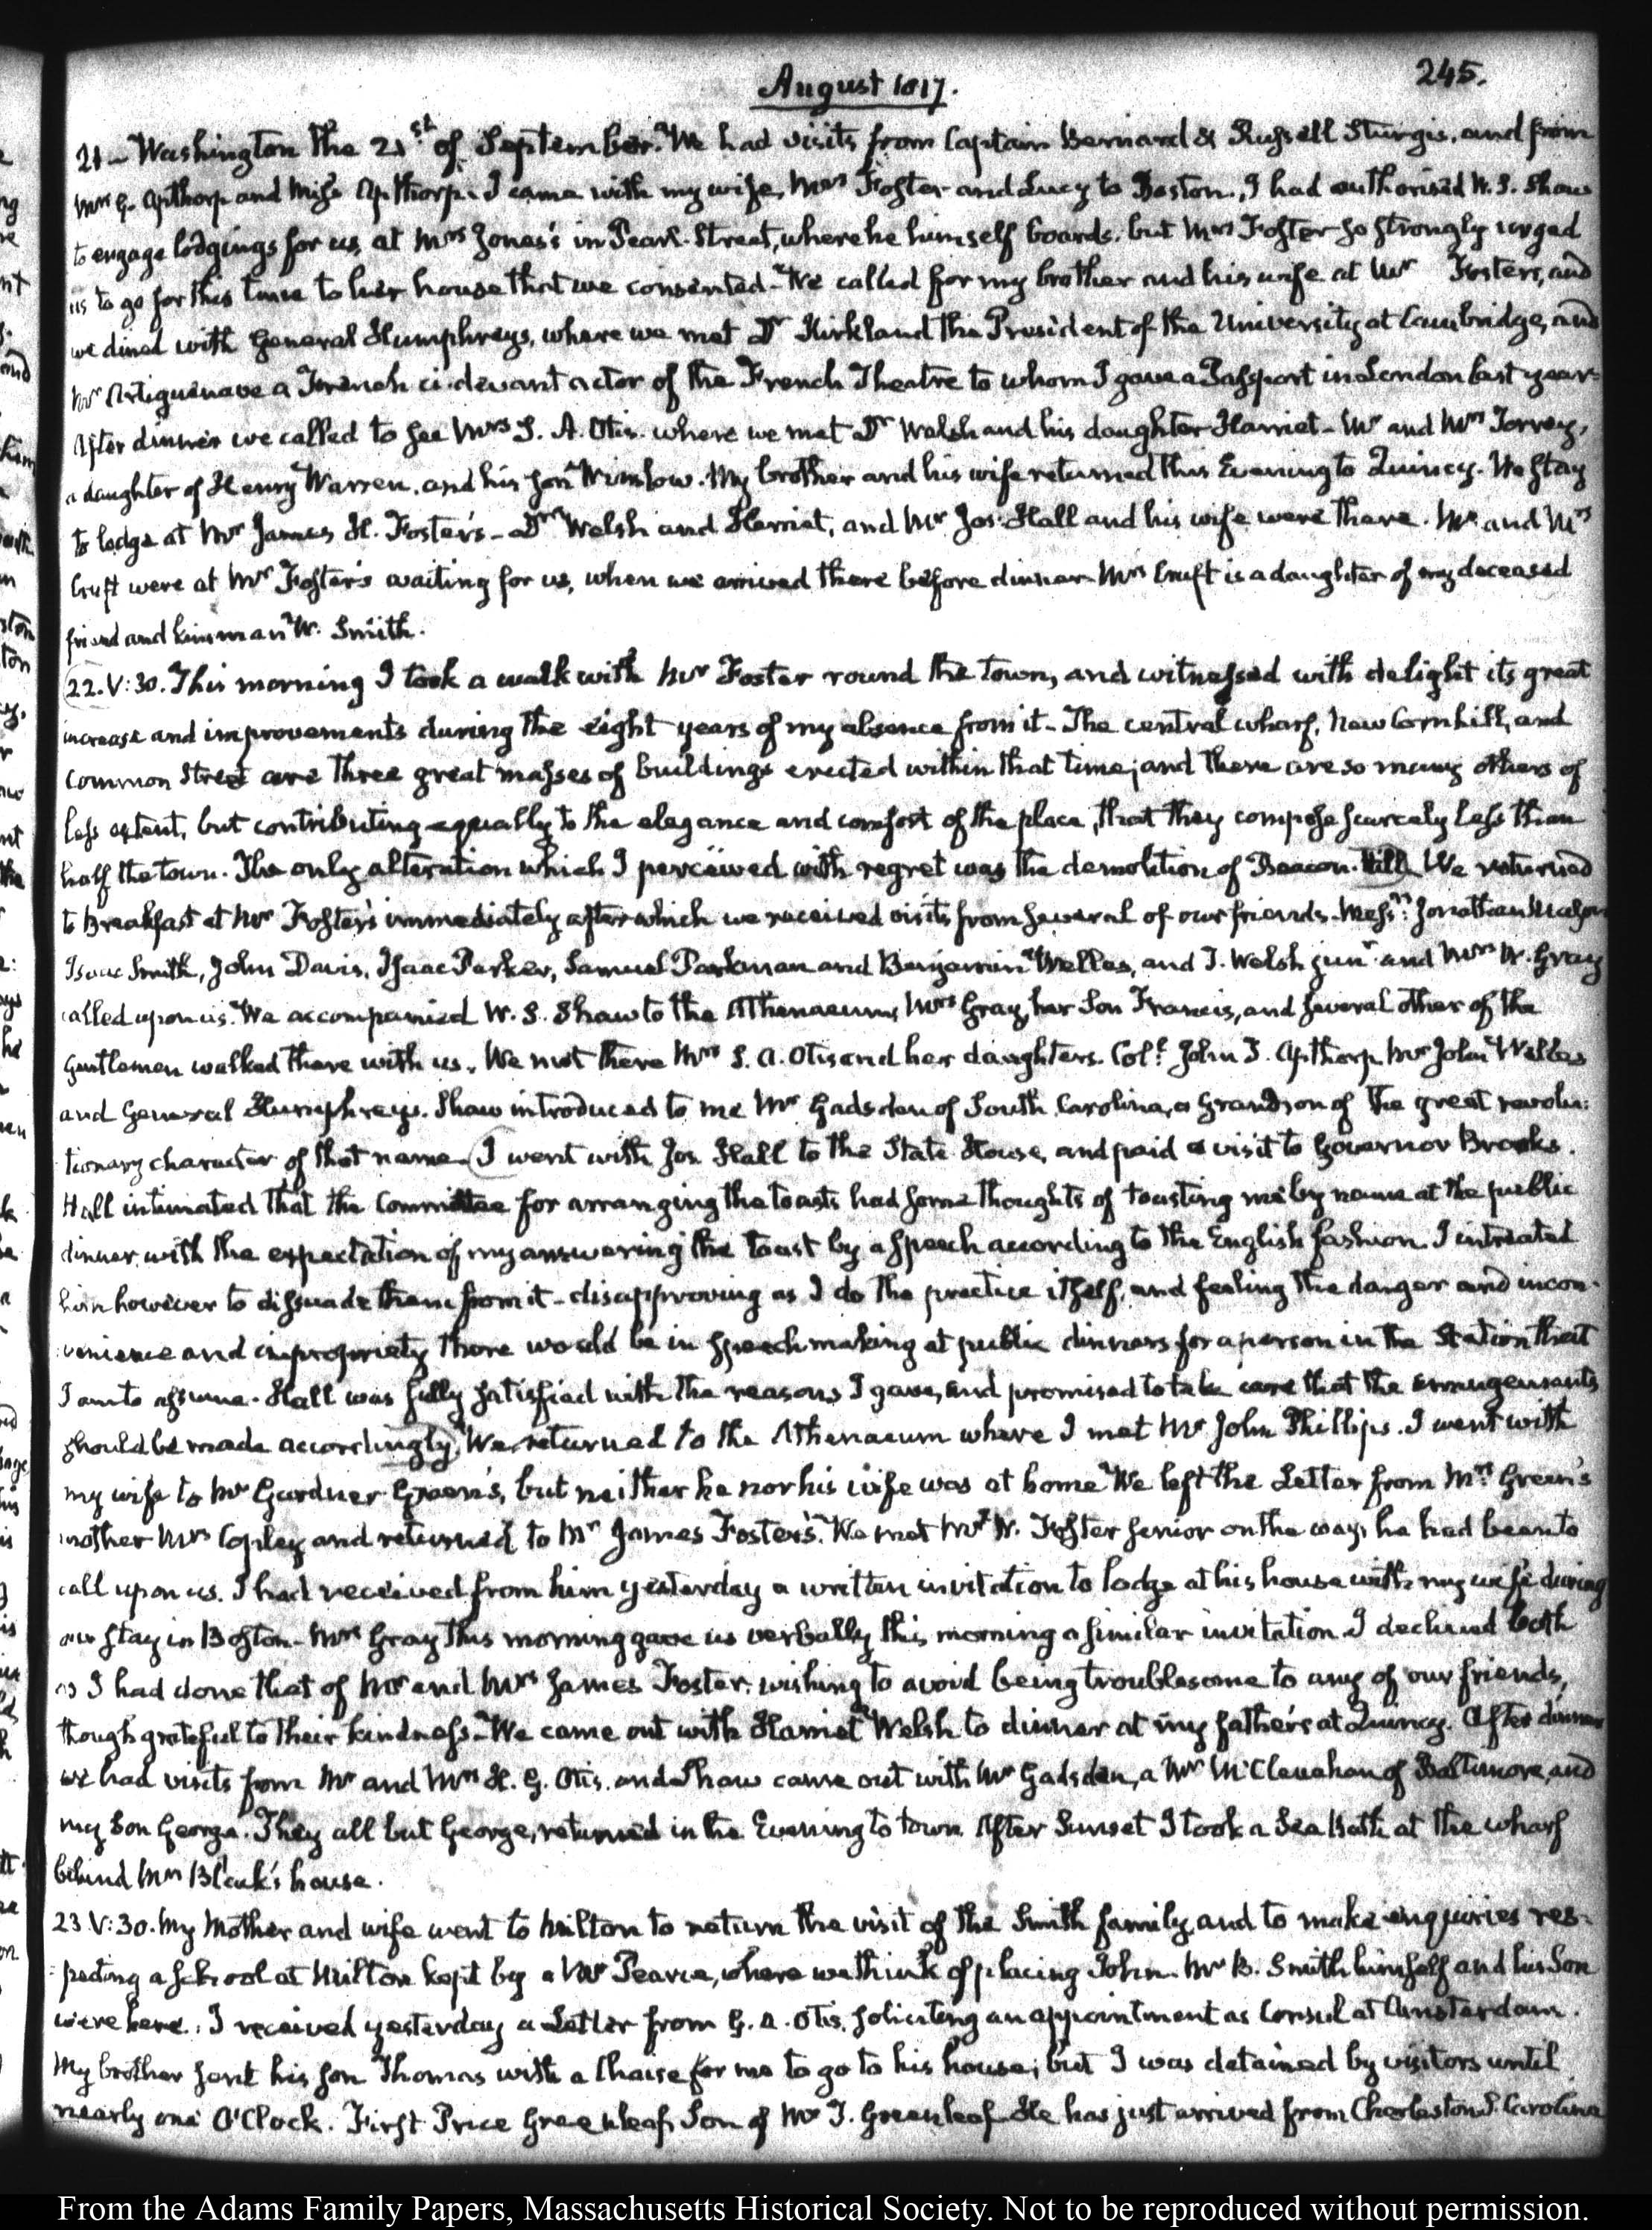 August 1817.
245.
21 – Washington the 21st of September. We had visits from Captain Bernard & Russell Sturgis, and from
Mrs G. Apthorp and Miss Apthorp. I came with my wife, Mrs Foster and Lucy to Boston. I had authorised W. S. Shaw
to engage lodgings for us, at Mrs Jones's in Pearl-Street, where he himself boards. but Mrs Foster so strongly urged
us to go for this time to her house that we consented – We called for my brother and his wife at Mr Fosters, and
we dined with General Humphreys, where we met Dr Kirkland the President of the University at Cambridge, and
Mr Artiguenave a French ci-devant actor of the French Theatre to whom I gave a Passport in London last year –
After dinner we called to see Mrs S. A. Otis. where we met Dr Welsh and his daughter Harriet – Mr and Mrs Torrey,
a daughter of Henry Warren, and his son Winslow. My brother and his wife returned this Evening to Quincy. We stay
to lodge at Mr James H. Foster's – Dr Welsh and Harriet, and Mr Jos. Hall and his wife were there. Mr and Mrs
Cruft were at Mr Foster's waiting for us, when we arrived there before dinner – Mrs Cruft is a daughter of my deceased
friend and kinsman W. Smith.
22. V:30. This morning I took a walk with Mr Foster round the town, and witnessed with delight its great
increase and improvements during the eight years of my absence from it – The central wharf, New Cornhill, and
Common Street are three great masses of buildings erected within that time; and there are so many others of
less extent, but contributing equally to the elegance and comfort of the place, that they compose scarcely less than
half the town. The only alteration which I perceived with regret was the demolition of Beacon-Hill. We returned
to Breakfast at Mr Foster's immediately after which we received visits from several of our friends – Messrs: Jonathan Mason
Isaac Smith, John Davis, Isaac Parker, Samuel Parkman and Benjamin Welles, and T. Welsh junr and Mrs W. Gray
called upon us. We accompanied W. S. Shaw to the Athenaeum, Mrs Gray, her Son Francis, and several other of the
gentlemen walked there with us. We met there Mrs S. A. Otis and her daughters. Coll John T. Apthorp Mr John Welles
and General Humphreys. Shaw introduced to me Mr Gadsden of South Carolina, a Grandson of the great revolu:
tionary character of that name – I went with Jos. Hall to the State House, and paid a visit to Governor Brooks.
Hall intimated that the Committee for arranging the toasts had some thoughts of toasting me by name at the public
dinner, with the expectation of my answering the toast by a speech according to the English fashion. I intreated
him however to dissuade them from it – disapproving as I do the practice itself, and feeling the danger and incon-
:venience and impropriety there would be in speech making at public dinners for a person in the Station that
I am to assume. Hall was fully satisfied with the reasons I gave, and promised to take care that the arrangements
should be made accordingly. We returned to the Athenaeum where I met Mr John Phillips. I went with
my wife to Mr Gardner Green's, but neither he nor his wife was at home. We left the Letter from Mrs Green's
mother Mrs Copley and returned to Mr James Foster's. We met Mr W. Foster senior on the way; he had been to
call upon us. I had received from him yesterday a written invitation to lodge at his house with my wife during
our stay in Boston – Mrs Gray this morning gave us verbally this morning a similar invitation. I declined both
as I had done that of Mr and Mrs James Foster; wishing to avoid being troublesome to any of our friends,
though grateful to their kindness – We came out with Harriet Welsh to dinner at my father's at Quincy. After dinner
we had visits from Mr and Mrs H. G. Otis. and Shaw came out with Mr Gadsden, a Mr McClenahan of Baltimore, and
my Son George. They all but George, returned in the Evening to town. After Sunset I took a Sea Bath at the wharf
behind Mrs Black's house.
23. V:30. My Mother and wife went to Milton to return the visit of the Smith family, and to make enquiries res-
:pecting a school at Milton kept by a Mr Pearce, where we think of placing John. Mr B. Smith himself and his Son
were here. I received yesterday a Letter from G. A. Otis, soliciting an appointment as Consul at Amsterdam.
My brother sent his son Thomas with a Chaise for me to go to his house; but I was detained by visitors until
nearly one O'Clock. First Price Greenleaf, Son of Mr T. Greenleaf. He has just arrived from Charleston S. Carolina
From the Adams Family Papers, Massachusetts Historical Society. Not to be reproduced without permission.